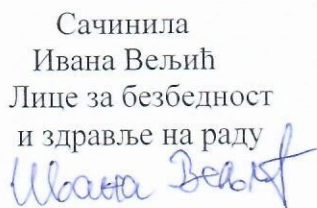 Сачинила
Ивана Вељић
Лице за безбедност
и здравље на раду
Ивана Вељић